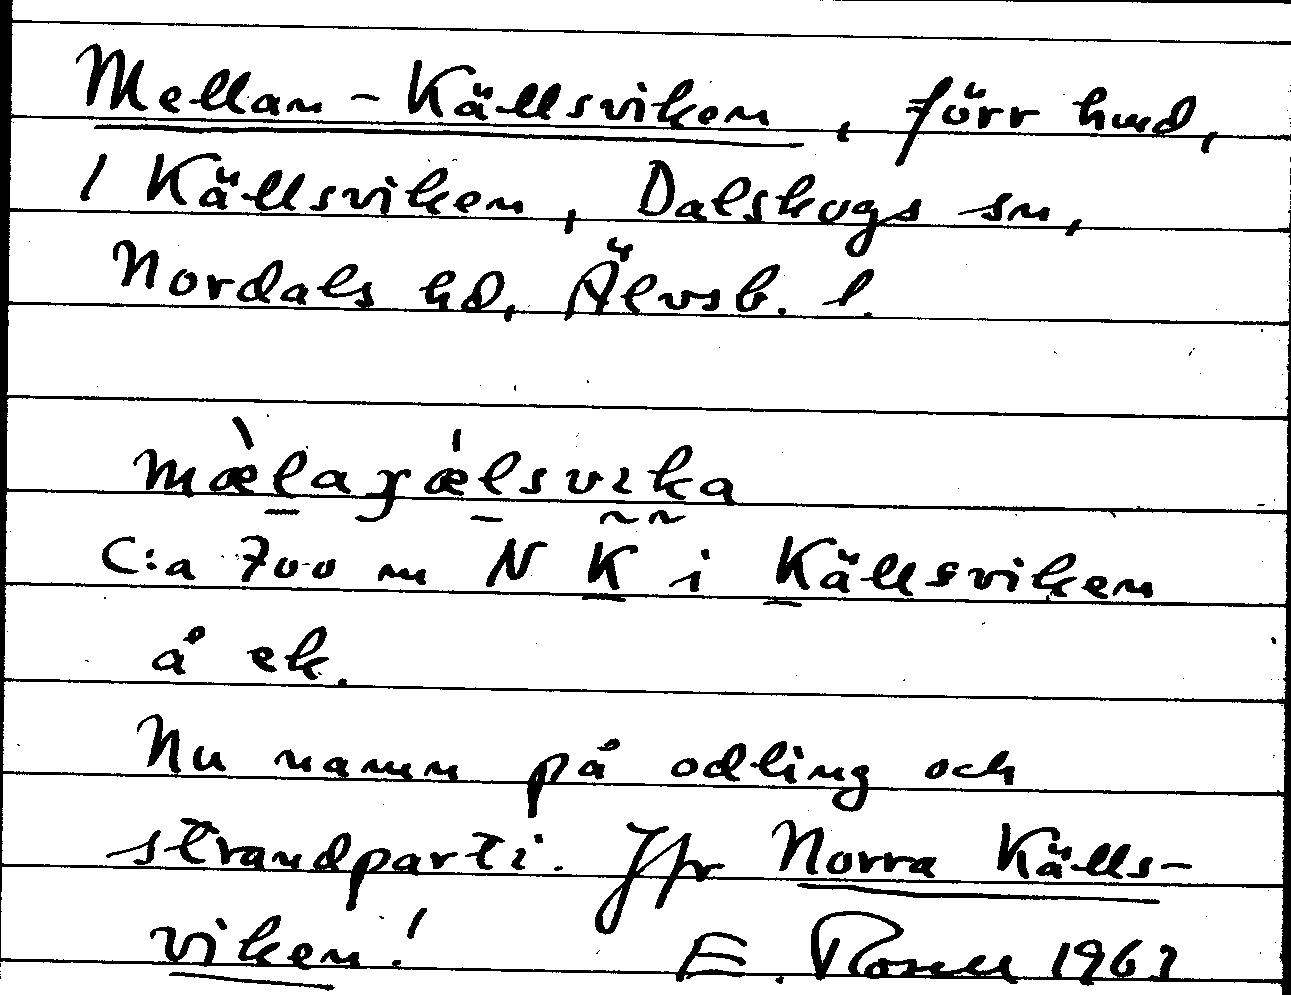 Mellan-Källsviken, förr hmd,
/ Källsviken, Dalskogs sn,
Nordals hd, Älvsb. l.
mæ̀l̠aɟǽl̠svɩka
C:a 700 m N K̠ i K̠ällsviken
å ek.
Nu namn på odling och
strandparti. Jfr Norra Källs-
viken! E. Rosell 1963